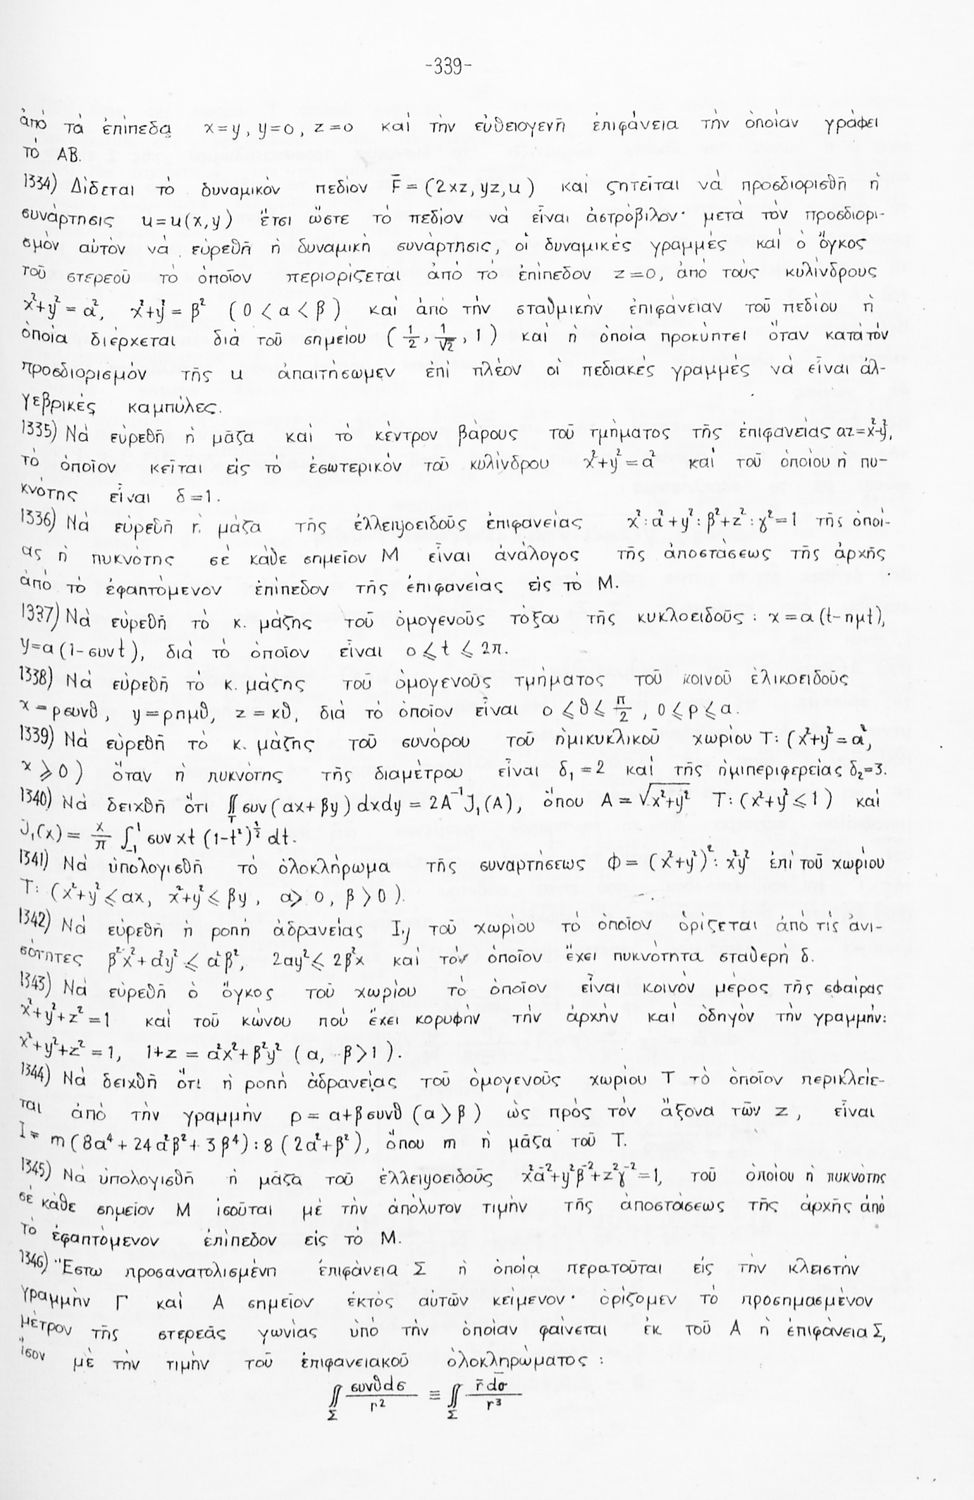 -339-
ἀπό τά ἐπίπεδα x=y, y=0, z=0 καί τήν εὐθειογενῆ ἐπιφάνεια τήν ὁποίαν γράφει
τό ΑΒ.
1334) Δίδεται τό δυναμικόν πεδίον F̄ = (2xz, yz, u) καί ζητεῖται νά προσδιορισθῆ ἡ
συνάρτησις u=u(x,y) ἔτσι ὥστε τό πεδίον νά εἶναι ἀστρόβιλον· μετά τόν προσδιορι-
σμόν αὐτόν νά εὑρεθῆ ἡ δυναμική συνάρτησις, οἱ δυναμικές γραμμές καί ὁ ὄγκος
τοῦ στερεοῦ τό ὁποῖον περιορίζεται ἀπό τό ἐπίπεδον z=0, ἀπό τούς κυλίνδρους
x²+y² = α², x²+y² = β² (0 < α < β) καί ἀπό τήν σταθμικήν ἐπιφάνειαν τοῦ πεδίου ἡ
ὁποία διέρχεται διά τοῦ σημείου (1/2, 1/√2, 1) καί ἡ ὁποία προκύπτει ὅταν κατά τόν
προσδιορισμόν τῆς u ἀπαιτήσωμεν ἐπί πλέον οἱ πεδιακές γραμμές νά εἶναι ἀλ-
γεβρικές καμπύλες.
1335) Νά εὑρεθῆ ἡ μᾶζα καί τό κέντρον βάρους τοῦ τμήματος τῆς ἐπιφανείας αz=x²-y²,
τό ὁποῖον κεῖται εἰς τό ἐσωτερικόν τοῦ κυλίνδρου x²+y²=α² καί τοῦ ὁποίου ἡ πυ-
κνότης εἶναι δ=1.
1336) Νά εὑρεθῆ ἡ μᾶζα τῆς ἐλλειψοειδοῦς ἐπιφανείας x²:α²+y²:β²+z²:γ²=1 τῆς ὁποί-
ας ἡ πυκνότης σέ κάθε σημεῖον Μ εἶναι ἀνάλογος τῆς ἀποστάσεως τῆς ἀρχῆς
ἀπό τό ἐφαπτόμενον ἐπίπεδον τῆς ἐπιφανείας εἰς τό Μ.
1337) Νά εὑρεθῆ τό κ. μάζης τοῦ ὁμογενοῦς τόξου τῆς κυκλοειδοῦς: x=α(t-ημt),
y=α(1-συνt), διά τό ὁποῖον εἶναι 0⩽t⩽2π.
1338) Νά εὑρεθῆ τό κ. μάζης τοῦ ὁμογενοῦς τμήματος τοῦ κοινοῦ ἑλικοειδοῦς
x=ρσυνθ, y=ρημθ, z=κθ, διά τό ὁποῖον εἶναι 0⩽θ⩽π/2, 0⩽ρ⩽α.
1339) Νά εὑρεθῆ τό κ. μάζης τοῦ συνόρου τοῦ ἡμικυκλικοῦ χωρίου Τ: (x²+y²=α²,
x⩾0) ὅταν ἡ πυκνότης τῆς διαμέτρου εἶναι δ₁=2 καί τῆς ἡμιπεριφερείας δ₂=3.
1340) Νά δειχθῆ ὅτι ∬_T συν(αx+βy)dxdy = 2Α⁻¹J₁(Α), ὅπου Α=√x²+y² Τ: (x²+y²⩽1) καί
J₁(x) = x/π ∫₋₁¹ συν xt (1-t²)^½ dt.
1341) Νά ὑπολογισθῆ τό ὁλοκλήρωμα τῆς συναρτήσεως Φ = (x²+y²)²: x²y² ἐπί τοῦ χωρίου
Τ: (x²+y²⩽αx, x²+y²⩽βy, α>0, β>0).
1342) Νά εὑρεθῆ ἡ ροπή ἀδρανείας Iy τοῦ χωρίου τό ὁποῖον ὁρίζεται ἀπό τίς ἀνι-
σότητες β²x²+α²y²⩽α²β², 2αy²⩽2β²x καί τόν ὁποῖον ἔχει πυκνότητα σταθερή δ.
1343) Νά εὑρεθῆ ὁ ὄγκος τοῦ χωρίου τό ὁποῖον εἶναι κοινόν μέρος τῆς σφαίρας
x²+y²+z²=1 καί τοῦ κώνου πού ἔχει κορυφήν τήν ἀρχήν καί ὁδηγόν τήν γραμμήν:
x²+y²+z²=1, 1+z = α²x²+β²y² (α, β>1).
1344) Νά δειχθῆ ὅτι ἡ ροπή ἀδρανείας τοῦ ὁμογενοῦς χωρίου Τ τό ὁποῖον περικλείε-
ται ἀπό τήν γραμμήν ρ = α+βσυνθ (α>β) ὡς πρός τόν ἄξονα τῶν z, εἶναι
I = m(8α⁴+24α²β²+3β⁴):8(2α²+β²), ὅπου m ἡ μᾶζα τοῦ Τ.
1345) Νά ὑπολογισθῆ ἡ μᾶζα τοῦ ἐλλειψοειδοῦς x²α⁻²+y²β⁻²+z²γ⁻²=1, τοῦ ὁποίου ἡ πυκνότης
σέ κάθε σημεῖον Μ ἰσοῦται μέ τήν ἀπόλυτον τιμήν τῆς ἀποστάσεως τῆς ἀρχῆς ἀπό
τό ἐφαπτόμενον ἐπίπεδον εἰς τό Μ.
1346) Ἔστω προσανατολισμένη ἐπιφάνεια Σ ἡ ὁποία περατοῦται εἰς τήν κλειστήν
γραμμήν Γ καί Α σημεῖον ἐκτός αὐτῶν κείμενον· ὁρίζομεν τό προσημασμένον
μέτρον τῆς στερεᾶς γωνίας ὑπό τήν ὁποίαν φαίνεται ἐκ τοῦ Α ἡ ἐπιφάνεια Σ,
ἴσον μέ τήν τιμήν τοῦ ἐπιφανειακοῦ ὁλοκληρώματος:
∬_Σ συνθdσ/r² ≡ ∬_Σ r̄dσ̄/r³